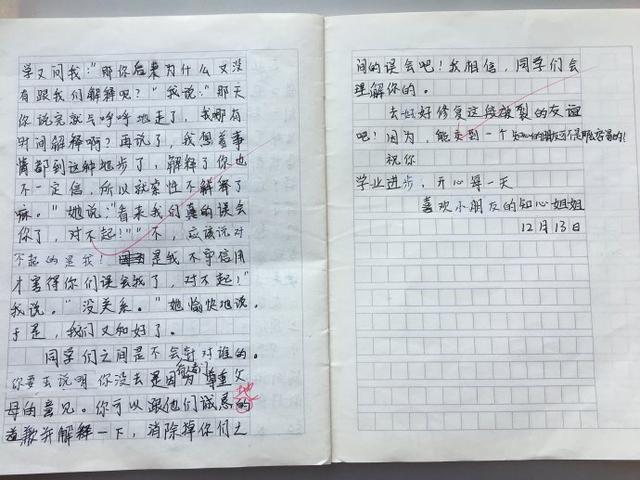 学又问我:"那你后来为什么又没
有跟我们解释呢?"我说:"那天
你说完就气呼呼地走了,我哪有
时间解释啊?再说了,我想着事
情都到这种地步了,解释了你也
不一定信,所以就索性不解释了
嘛。"她说:"看来我们真的误会
你了,对不起!""不,应该说对
不起的是我!是我不守信用
才害得你们误会我了,对不起!"
我说。"没关系。"她愉快地说。
于是,我们又和好了。
同学们之间是不会针对谁的。
你要去说明你没去是因为尊重父
母的意见。你可以跟他们诚恳的
地
道歉并解释一下,消除掉你们之
间的误会吧!我相信,同学们会
理解你的。
去好好修复这段破裂的友谊
吧!因为,能交到一个知心的朋友可不是那么容易的!
祝你
学业进步,开心每一天
喜欢小朋友的知心姐姐
12月13日